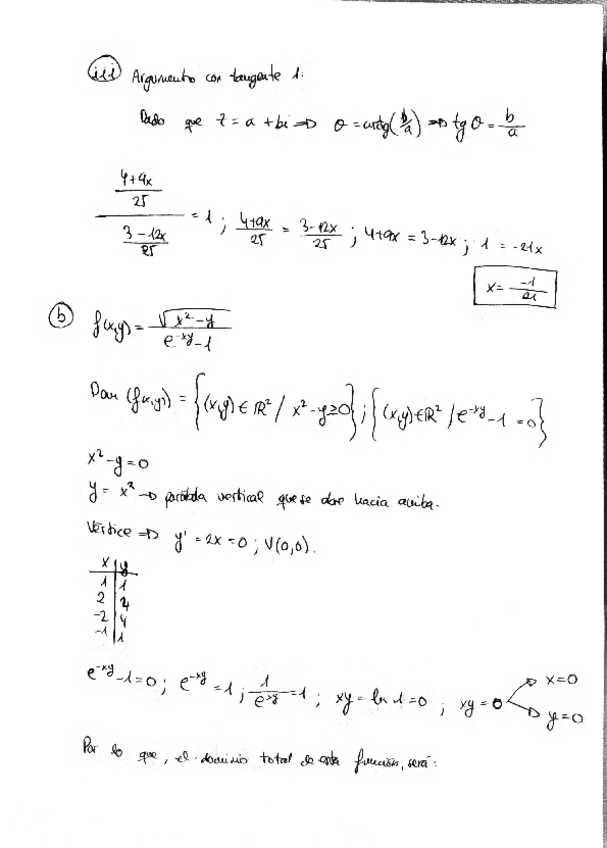 iii) Argumento con tangente 1:
Dado que z = a + bi ⇒ θ = arctg(b/a) ⇒ tg θ = b/a
((4+9x)/25)/((3-12x)/25) = 1 ; (4+9x)/25 = (3-12x)/25 ; 4+9x = 3-12x ; 1 = -21x
x = -1/21
b) f(x,y) = √(x²-y)/(e^(-xy)-1)
Dom (f(x,y)) = {(x,y) ∈ ℝ² / x²-y≥0} ; {(x,y) ∈ ℝ² / e^(-xy)-1 = 0}
x²-y=0
y = x² → parábola vertical que se abre hacia arriba.
Vértice ⇒ y' = 2x = 0 ; V(0,0).
x | y
1 | 1
2 | 4
-2 | 4
-1 | 1
e^(-xy)-1=0 ; e^(-xy) = 1 ; 1/e^(xy) = 1 ; xy = ln 1 = 0 ; xy = 0 → x=0
→ y=0
Por lo que, el dominio total de esta función, será: